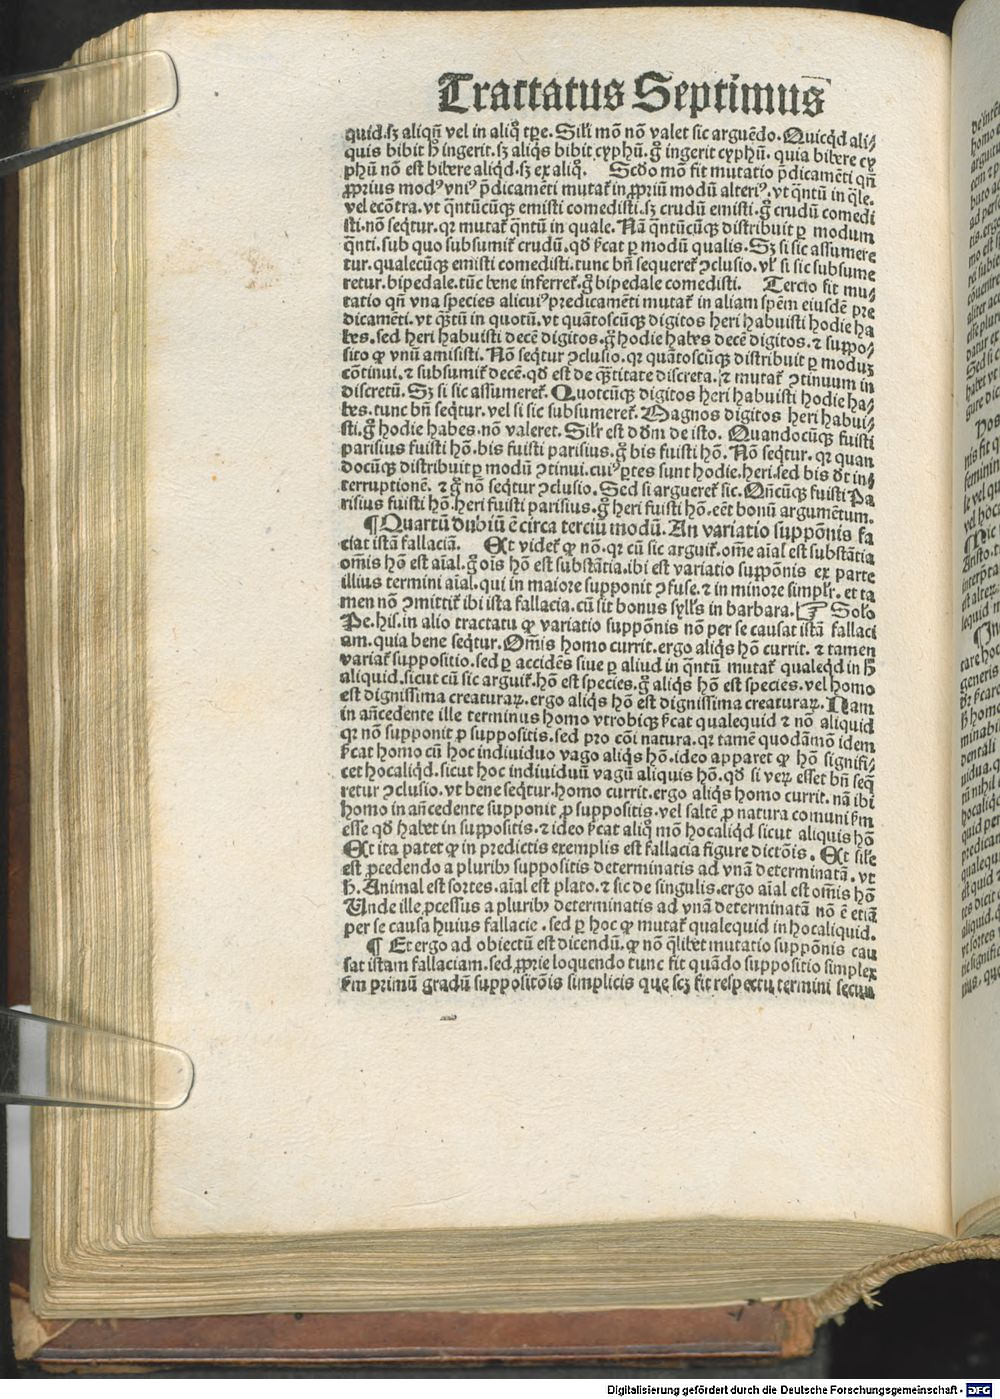 Tractatus Septimus
quid.sꝫ aliqñ vel in aliq̊ tꝑe. Sil'r mõ nõ valet sic arguẽdo. Quicq̇d ali⸗
quis bibit h̄ ingerit. sꝫ aliq̇s bibit cyphũ. g̊ ingerit cyphũ. quia bibere cy
phũ nõ est bibere aliq̇d. sꝫ ex aliq̊. Scd̄o mõ fit mutatio p̃dicamẽti qñ
ꝓprius modꝰ vniꝰ p̃dicamẽti mutat̃ in ꝓpriũ modũ alteriꝰ. vt q̃ntũ in q̃le.
vel ecõtra. vt q̃ntũcũqꝫ emisti comedisti. sꝫ crudũ emisti. g̊ crudũ comedi
sti. nõ seq̇tur. qꝛ mutat̃ q̃ntũ in quale. Nã q̃ntũcũqꝫ distribuit ꝑ modum
q̃nti. sub quo subsumit̃ crudũ. qđ ẜcat ꝑ modũ qualis. Sꝫ si sic assumere
tur. qualecũqꝫ emisti comedisti. tunc bñ sequeret̃ ꝯclusio. vl' si sic subsume
retur. bipedale. tũc bene inferret̃. g̊ bipedale comedisti. Tercio fit mu⸗
tatio qñ vna species alicuiꝰ predicamẽti mutat̃ in aliam spẽm eiusdẽ pre
dicamẽti. vt q̃tũ in quotũ. vt quãtoscũqꝫ digitos heri habuisti hodie ha
bes. sed heri habuisti decẽ digitos. g̊ hodie habes decẽ digitos. ⁊ suppo⸗
sito ꝙ vnũ amisisti. Nõ seq̇tur ꝯclusio. qꝛ quãtoscũqꝫ distribuit ꝑ modus
cõtinui. ⁊ subsumit̃ decẽ. qđ est de q̃titate discreta. ⁊ mutat̃ ꝯtinuum in
discretũ. Sꝫ si sic assumeret̃. Quotcũqꝫ digitos heri habuisti hodie ha⸗
bes. tunc bñ seq̇tur. vel si sic subsumeret̃. Magnos digitos heri habui⸗
sti. g̊ hodie habes. nõ valeret. Sil'r est dđm de isto. Quandocũqꝫ fuisti
parisius fuisti hõ. bis fuisti parisius. g̊ bis fuisti hõ. Nõ seq̇tur. qꝛ quan
docũqꝫ distribuit ꝑ modũ ꝯtinui. cuiꝰ ꝑtes sunt hodie. heri. sed bis đt in⸗
terruptionẽ. ⁊ g̊ nõ seq̇tur ꝯclusio. Sed si argueret̃ sic. Qñcũqꝫ fuisti Pa
risius fuisti hõ. heri fuisti parisius. g̊ heri fuisti hõ. eẽt bonũ argumẽtum.
¶ Quartũ dubiũ ẽ circa terciũ modũ. An variatio suppõnis fa
ciat istã fallaciã. Et videt̃ ꝙ nõ. qꝛ cũ sic arguit̃. om̃e aĩal est substãtia
om̃is hõ est aĩal. g̊ oĩs hõ est substãtia. ibi est variatio suppõnis ex parte
illius termini aĩal. qui in maiore supponit ꝯfuse. ⁊ in minore simpl'r. et ta
men nõ ꝯmittit̃ ibi ista fallacia. cũ sit bonus syll's in barbara. ☞ Sol'o
Pe. his. in alio tractatu ꝙ variatio suppõnis nõ per se causat istã fallaci
am. quia bene seq̇tur. Om̃is homo currit. ergo aliq̇s hõ currit. ⁊ tamen
variat̃ suppositio. sed ꝑ accidẽs siue ꝑ aliud in q̃ntũ mutat̃ qualeq̇d in h̄
aliquid. sicut cũ sic arguit̃. hõ est species. g̊ aliq̇s hõ est species. vel homo
est dignissima creaturaꝝ. ergo aliq̇s hõ est dignissima creaturaꝝ. Nam
in añcedente ille terminus homo vtrobiqꝫ ẜcat qualequid ⁊ nõ aliquid
qꝛ nõ supponit ꝓ suppositis. sed pro cõi natura. qꝛ tamẽ quodãmõ idem
ẜcat homo cũ hoc indiuiduo vago aliq̇s hõ. ideo apparet ꝙ hõ signifi⸗
cet hocaliq̇d. sicut hoc indiuiduũ vagũ aliquis hõ. qđ si veꝝ esset bñ seq̇
retur ꝯclusio. vt bene seq̇tur. homo currit. ergo aliq̇s homo currit. nã ibi
homo in añcedente supponit ꝓ suppositis. vel saltẽ ꝓ natura comuni ẜm
esse qđ habet in suppositis. ⁊ ideo ẜcat aliq̊ mõ hocaliq̇d sicut aliquis hõ
Et ita patet ꝙ in predictis exemplis est fallacia figure dictõis. Et sil'e
est ꝓcedendo a pluribꝰ suppositis determinatis ad vnã determinatã. vt
h̄. Animal est sortes. aĩal est plato. ⁊ sic de singulis. ergo aĩal est om̃is hõ
Unde ille ꝓcessus a pluribꝰ determinatis ad vnã determinatã nõ ẽ etiã
per se causa huius fallacie. sed ꝑ hoc ꝙ mutat̃ qualequid in hocaliquid.
¶ Et ergo ad obiectũ est dicendũ. ꝙ nõ q̃libet mutatio suppõnis cau
sat istam fallaciam. sed ꝓprie loquendo tunc fit quãdo suppositio simplex
ẜm primũ gradũ suppositõis simplicis que scꝫ fit respectu termini secun
Digitalisierung gefördert durch die Deutsche Forschungsgemeinschaft - DFG